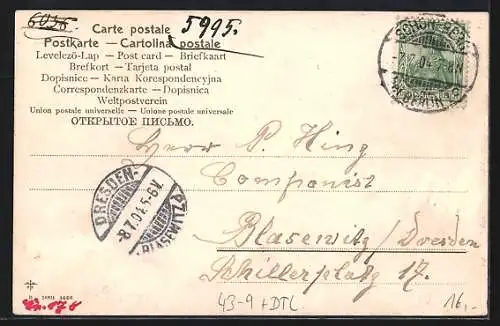 6036
5995.
Carte postale
Postkarte — Cartolina postale
Levelező-Lap — Post card — Briefkaart
Brefkort — Tarjeta postal
Dopisnice — Karta Korespondencyjna
Correspondenzkarte — Dopisnica
Weltpostverein
Union postale universelle — Unione postale universale
ОТКРЫТОЕ ПИСЬМО.
Herrn P. Hing
Componist
Blasewitz/Dresden
Schillerplatz 17.
DRESDEN-
-8.7.04.5-6V.
BLASEWITZ
SERIE
43-9 +DTC
16,-